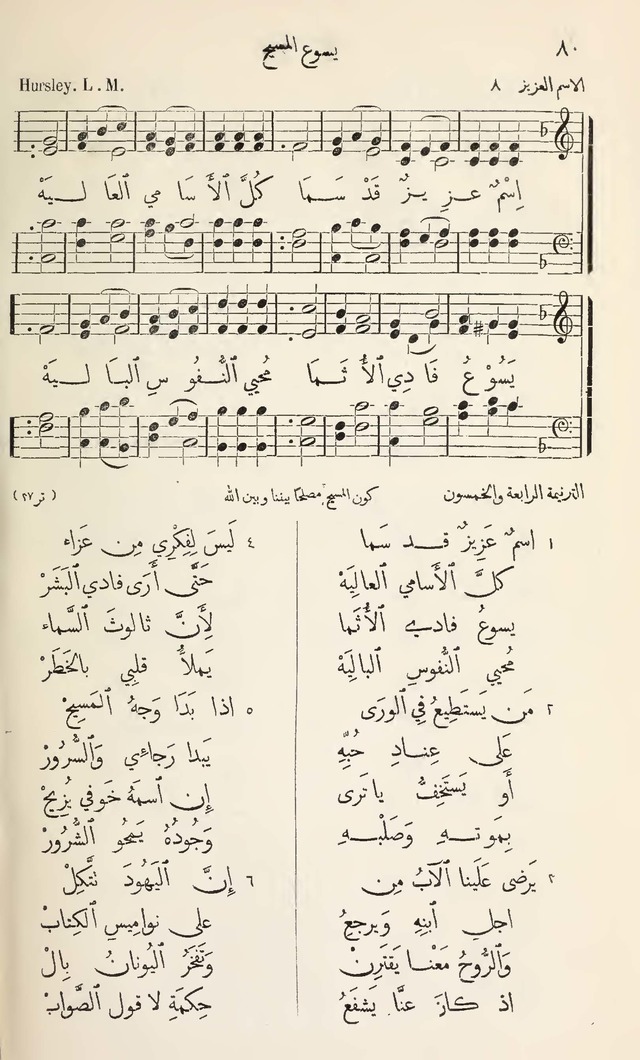 ٨٠ يسوع المسيح
الاسم العزيز ٨ Hursley. L. M.
اِسْمٌ عزِيزٌ قَدْ سَمَا كُلَّ ٱلْأَسَامي ٱلعَاليَهْ
يَسُوْعُ فَادِي ٱلأُثَمَا مُحيي ٱلنُّفُوْسِ ٱلبَاليَهْ
الترنيمة الرابعة والخمسون كون المسيح مصلحًا بيننا وبين الله (تر٢٧)
١ اسمٌ عَزِيزٌ قد سَما
كلَّ ٱلْأَسامي العاليَهْ
يسوعُ فادي ٱلْأُثَما
مُحيي ٱلنُّفُوسِ الباليَهْ
٢ مَن يَستَطِيعُ فِي ٱلوَرَى
عَلَى عِنادِ حُبِّهِ
أَو يَستَخِفُّ يا تَرى
بِمَوتهِ وَصَلْبهِ
٣ يَرضى عَلَينا ٱلآبُ مِن
اجلِ ٱبنِهِ وَيرجعُ
وَٱلرُّوحُ مَعْنا يَقتَرِنْ
اذ كانَ عنَّا يَشفَعُ
٤ لَيسَ لِفِكْرِي مِن عَزاء
حَتَّى أَرَى فادي ٱلبَشَرْ
لِأَنَّ ثالوثَ ٱلسَّماء
يَملأُ قلبِي بالخَطَرْ
٥ اذا بَدَا وَجهُ ٱلمَسِيحْ
يَبدا رَجاءِي وَٱلسُّرُورْ
إِن ٱسمَهُ خَوفي يُزِيحْ
وَجُودُهُ يَمحُو ٱلشُّرُورْ
٦ إِنَّ ٱليَهُودَ تتَّكِلْ
على نوامِيسِ ٱلكِتابْ
وَتَفخَرُ ٱليُونانُ بِالْ
حِكمَةِ لا قول ٱلصَّوابْ